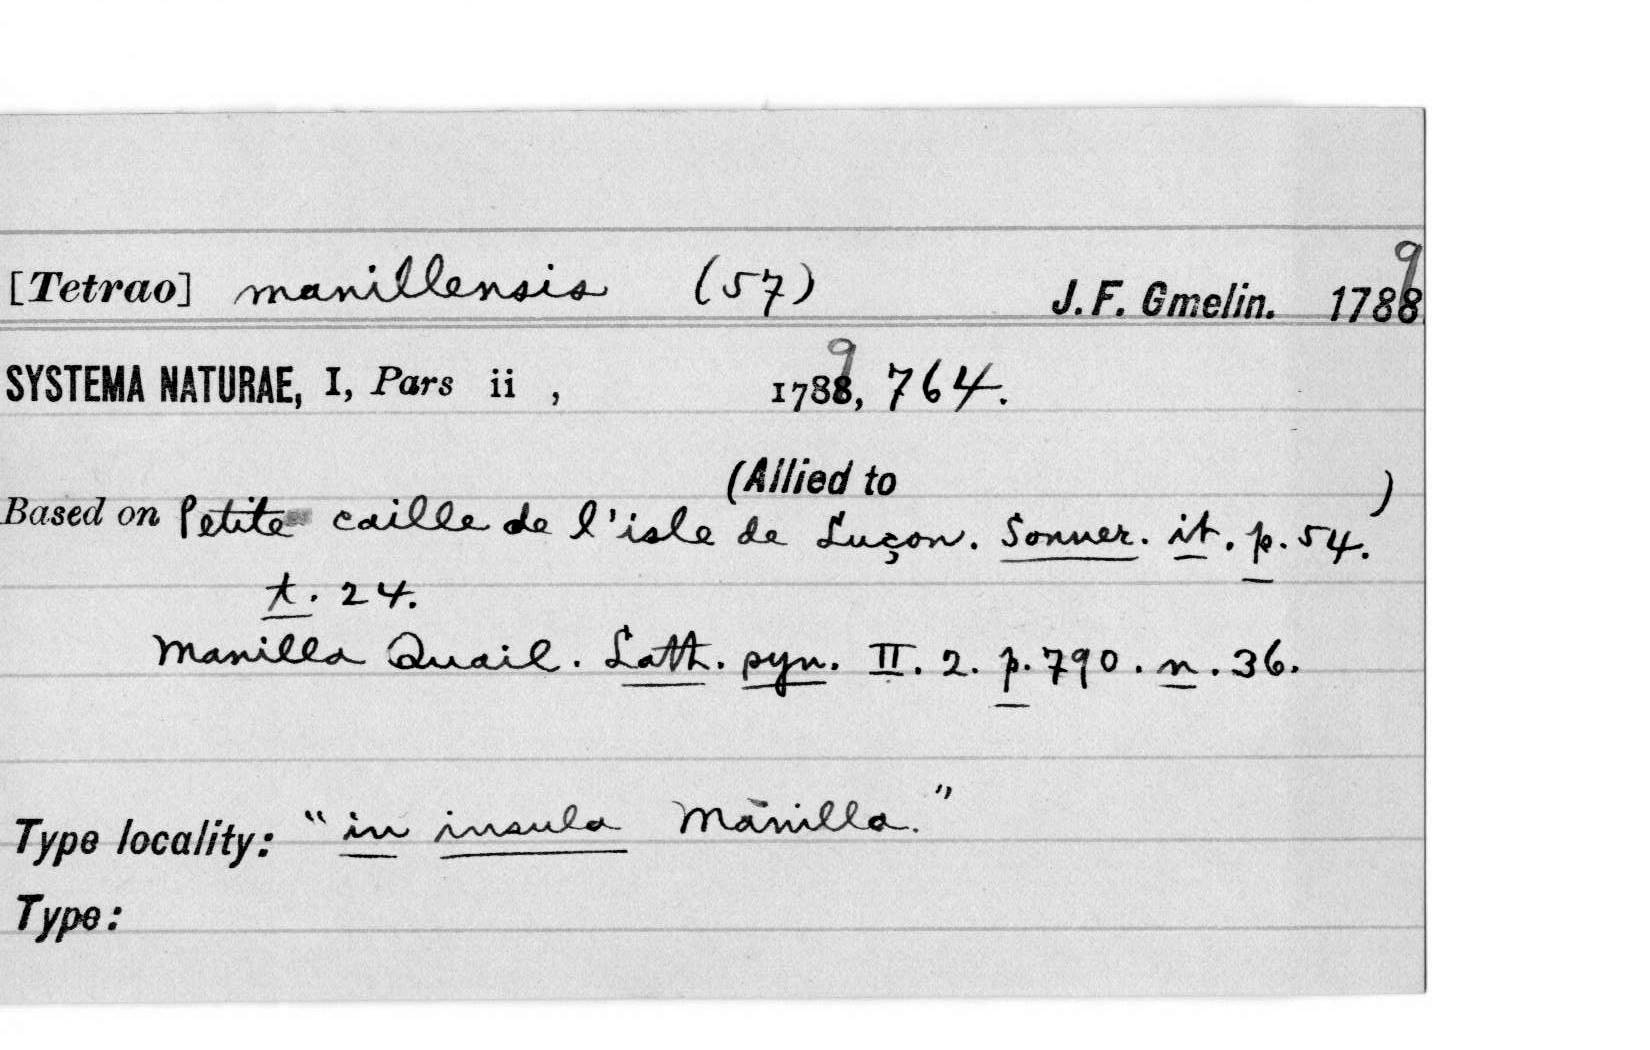 [Tetrao] manillensis (57) J. F. Gmelin. 1788 9
SYSTEMA NATURAE, I, Pars ii , 1788 9, 764.
(Allied to )
Based on Petite caille de l'isle de Luçon. Sonner. it. p. 54.
t. 24.
Manilla Quail. Lath. syn. II. 2. p. 790. n. 36.
Type locality: "in insula Manilla."
Type: